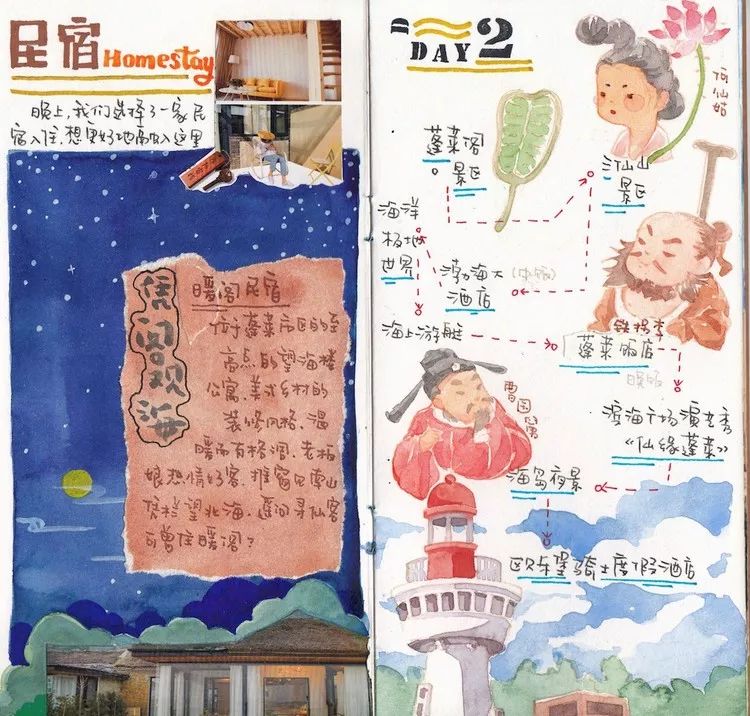 民宿 Homestay
晚上,我们选择了一家民
宿入住,想更好地融入这里
凭阁观海
暖阁民宿
位于蓬莱市区的至
高点的望海楼
公寓,美式乡村的
装修风格,温
暖而有格调,老板
娘热情好客,推窗见南山
凭栏望北海,遥问寻仙客
可曾住暖阁?
DAY 2
何仙姑
蓬莱阁
景区
三仙山
景区
海洋
极地
世界
渤海大
酒店
(午饭)
海上游艇
铁拐李
蓬莱饭店
晚饭
曹国舅
滨海广场演艺秀
《仙缘蓬莱》
海岛夜景
欧乐堡骑士度假酒店